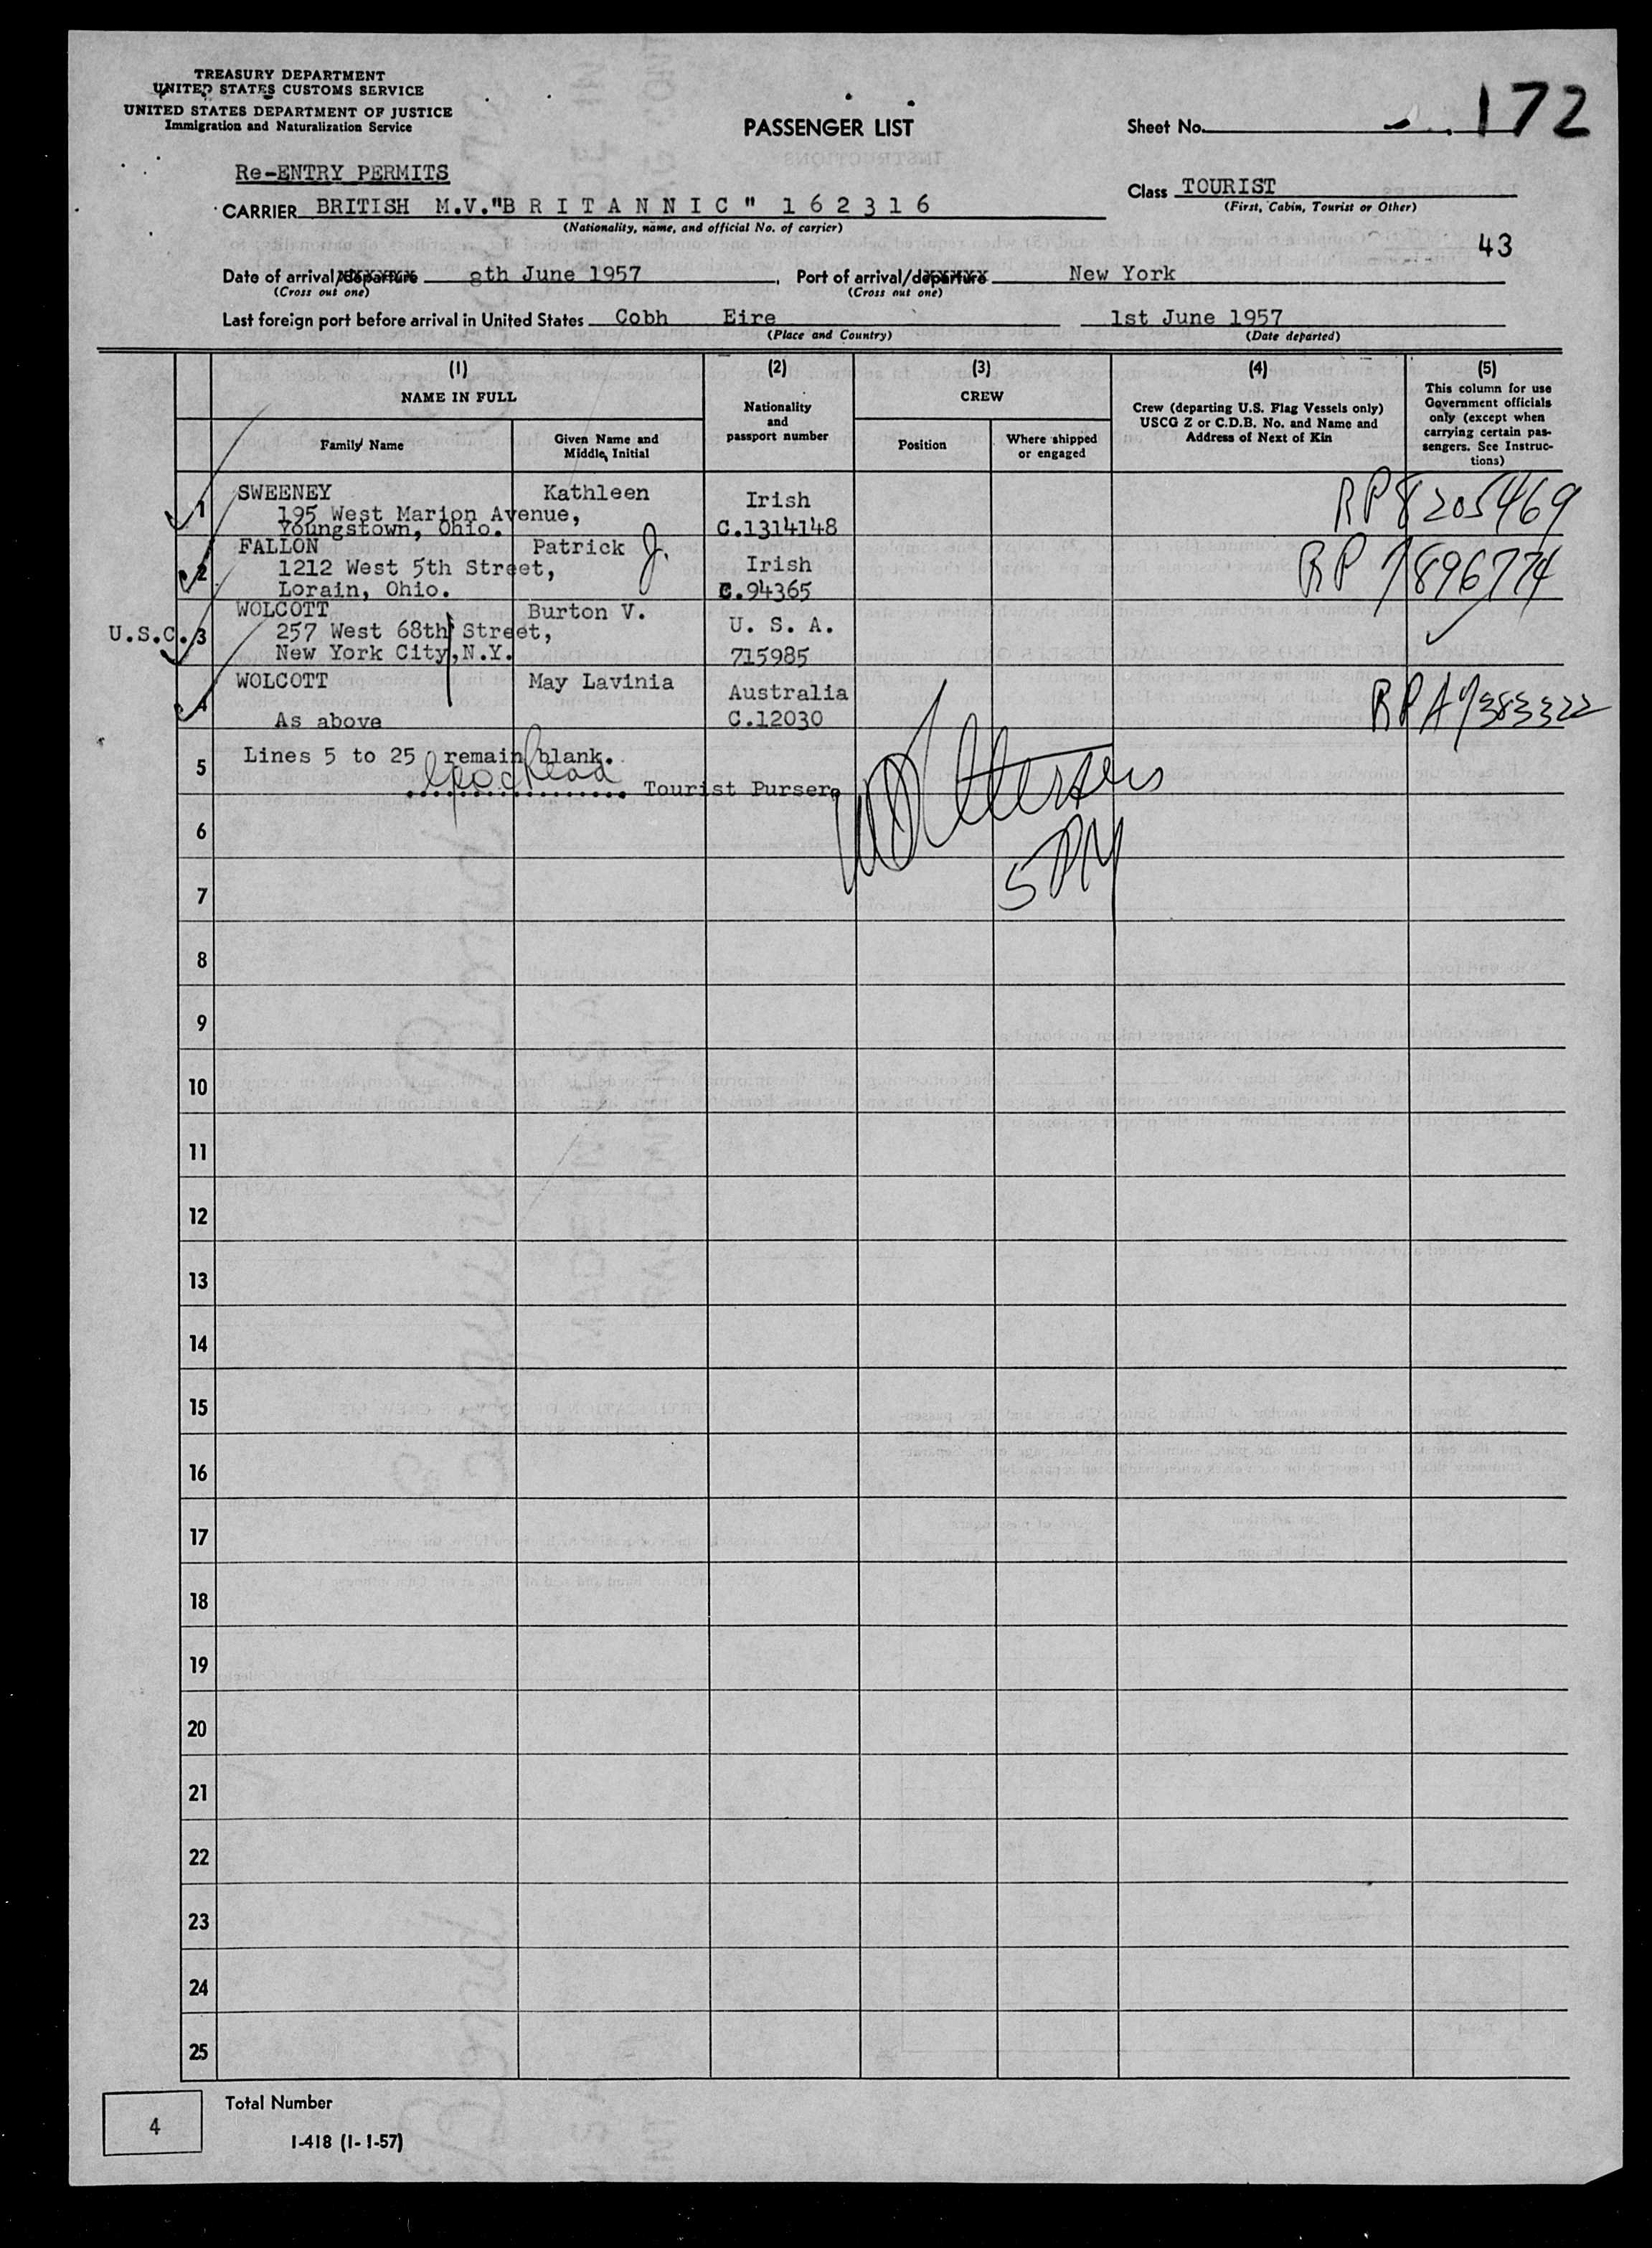 TREASURY DEPARTMENT
UNITED STATES CUSTOMS SERVICE
UNITED STATES DEPARTMENT OF JUSTICE
Immigration and Naturalization Service
PASSENGER LIST
Sheet No. 172
Re-ENTRY PERMITS
Class TOURIST
(First, Cabin, Tourist or Other)
CARRIER BRITISH M.V."B R I T A N N I C" 1 6 2 3 1 6
(Nationality, name, and official No. of carrier)
43
Date of arrival/departure 8th June 1957 Port of arrival/departure New York
(Cross out one) (Cross out one)
Last foreign port before arrival in United States Cobh Eire 1st June 1957
(Place and Country) (Date departed)
(1) (2) (3) (4) (5)
NAME IN FULL
Family Name
Given Name and
Middle Initial
Nationality
and
passport number
CREW
Position
Where shipped
or engaged
Crew (departing U.S. Flag Vessels only)
USCG Z or C.D.B. No. and Name and
Address of Next of Kin
This column for use
Government officials
only (except when
carrying certain pas-
sengers. See Instruc-
tions)
1 SWEENEY Kathleen Irish RP 8205469
195 West Marion Avenue,
Youngstown, Ohio. C.1314148
2 FALLON Patrick J. Irish RP 7896774
1212 West 5th Street,
Lorain, Ohio. C.94365
U.S.C. 3 WOLCOTT Burton V. U. S. A.
257 West 68th Street,
New York City, N.Y. 715985
4 WOLCOTT May Lavinia Australia RP A7383322
As above C.12030
5 Lines 5 to 25 remain blank.
Tourist Purser.
6
7
8
9
10
11
12
13
14
15
16
17
18
19
20
21
22
23
24
25
4 Total Number
I-418 (1-1-57)